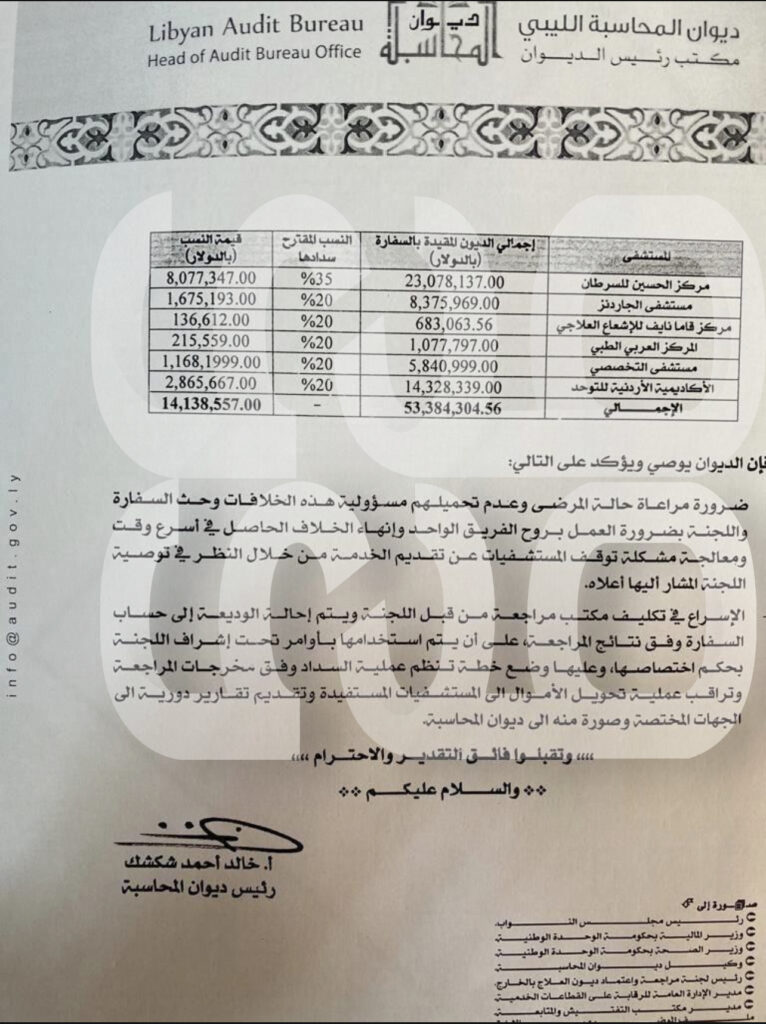 Libyan Audit Bureau
Head of Audit Bureau Office
ديوان المحاسبة
ديوان المحاسبة الليبي
مكتب رئيس الديوان
المستشفى إجمالي الديون المقيدة بالسفارة (بالدولار) النسب المقترح سدادها قيمة النسب (بالدولار)
مركز الحسين للسرطان 23,078,137.00 %35 8,077,347.00
مستشفى الجاردنز 8,375,969.00 %20 1,675,193.00
مركز قاما نايف للإشعاع العلاجي 683,063.56 %20 136,612.00
المركز العربي الطبي 1,077,797.00 %20 215,559.00
مستشفى التخصصي 5,840,999.00 %20 1,168,1999.00
الأكاديمية الأردنية للتوحد 14,328,339.00 %20 2,865,667.00
الإجمالي 53,384,304.56 - 14,138,557.00
فإن الديوان يوصي ويؤكد على التالي:
ضرورة مراعاة حالة المرضى وعدم تحميلهم مسؤولية هذه الخلافات وحث السفارة
واللجنة بضرورة العمل بروح الفريق الواحد وإنهاء الخلاف الحاصل في أسرع وقت
ومعالجة مشكلة توقف المستشفيات عن تقديم الخدمة من خلال النظر في توصية
اللجنة المشار أليها أعلاه.
الإسراع في تكليف مكتب مراجعة من قبل اللجنة ويتم إحالة الوديعة إلى حساب
السفارة وفق نتائج المراجعة، على أن يتم استخدامها بأوامر تحت إشراف اللجنة
بحكم اختصاصها، وعليها وضع خطة تنظم عملية السداد وفق مخرجات المراجعة
وتراقب عملية تحويل الأموال الى المستشفيات المستفيدة وتقديم تقارير دورية الى
الجهات المختصة وصورة منه الى ديوان المحاسبة.
،،،، وتقبلوا فائق التقدير والاحترام ،،،،
❖❖ والسلام عليكم ❖❖
أ. خالد أحمد شكشك
رئيس ديوان المحاسبة
info@audit.gov.ly
صورة إلى
رئيس مجلس النواب.
وزير المالية بحكومة الوحدة الوطنية.
وزير الصحة بحكومة الوحدة الوطنية.
وكيل ديوان المحاسبة.
رئيس لجنة مراجعة واعتماد ديون العلاج بالخارج.
مدير الإدارة العامة للرقابة على القطاعات الخدمية
مدير مكتب التفتيش والمتابعة.